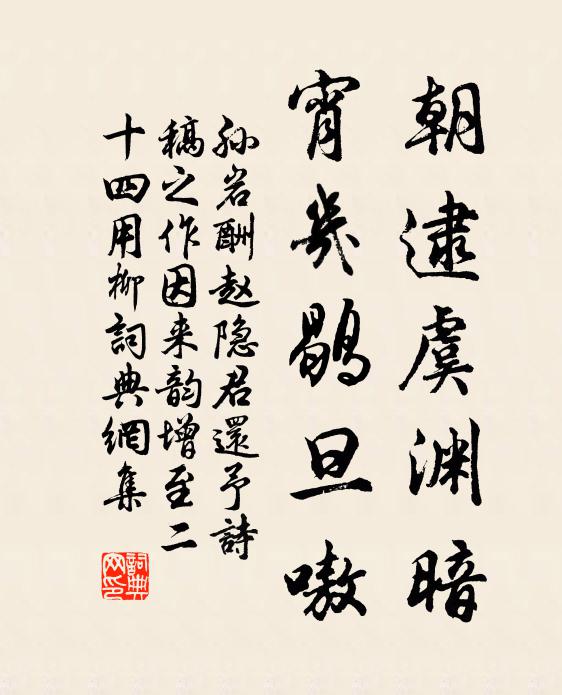 朝逮虞渊暗
宵幾鶡旦嗷
孙岩酬赵隐君還予詩
稿之作因来韵增至二
十四用柳詞典網集
詞典网印